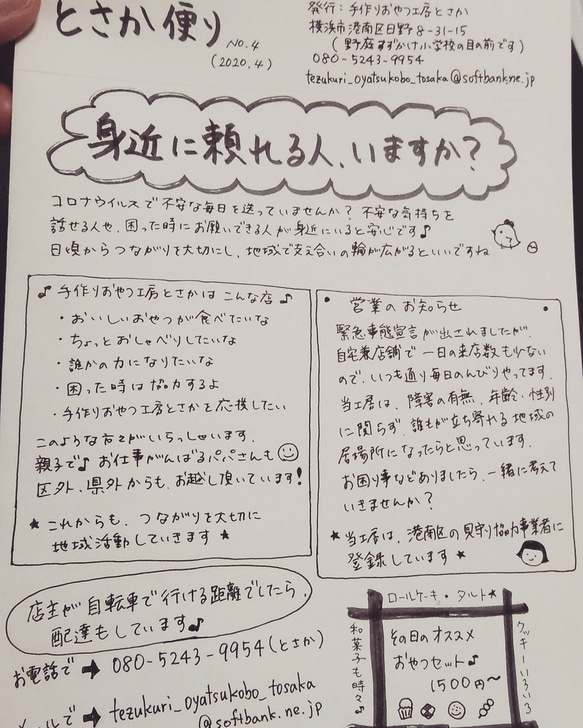 とさか便り
NO.4
(2020.4)
発行:手作りおやつ工房とさか
横浜市港南区日野8-31-15
(野庭すずかけ小学校の目の前です)
080-5243-9954
tezukuri_oyatsukobo_tosaka@softbank.ne.jp
身近に頼れる人、いますか?
コロナウイルスで不安な毎日を送っていませんか?不安な気持ちを
話せる人や、困った時にお願いできる人が身近にいると安心です♪
日頃からつながりを大切にし、地域で支え合いの輪が広がるといいですね
♪手作りおやつ工房とさかはこんな店♪
・おいしいおやつが食べたいな
・ちょっとおしゃべりしたいな
・誰かの力になりたいな
・困った時は協力するよ
・手作りおやつ工房とさかを応援したい
このような方々がいらっしゃいます。
親子で♪お仕事がんばるパパさんも
区外、県外からも、お越し頂いています!
★これからも、つながりを大切に
地域活動していきます★
・営業のお知らせ・
緊急事態宣言が出されましたが、
自宅兼店舗で一日の来店数も少ない
ので、いつも通り毎日のんびりやってます。
当工房は、障害の有無、年齢、性別
に関らず、誰もが立ち寄れる地域の
居場所になったらと思っています。
お困り事などありましたら、一緒に考えて
いきませんか?
★当工房は、港南区の見守り協力事業者に
登録しています★
店主が自転車で行ける距離でしたら、
配達もしています♪
お電話で➡080-5243-9954(とさか)
メールで➡tezukuri_oyatsukobo_tosaka
@softbank.ne.jp
ロールケーキ・タルト★
和菓子も時々♪
その日のオススメ
おやつセット♪
1500円〜
クッキーいろいろ